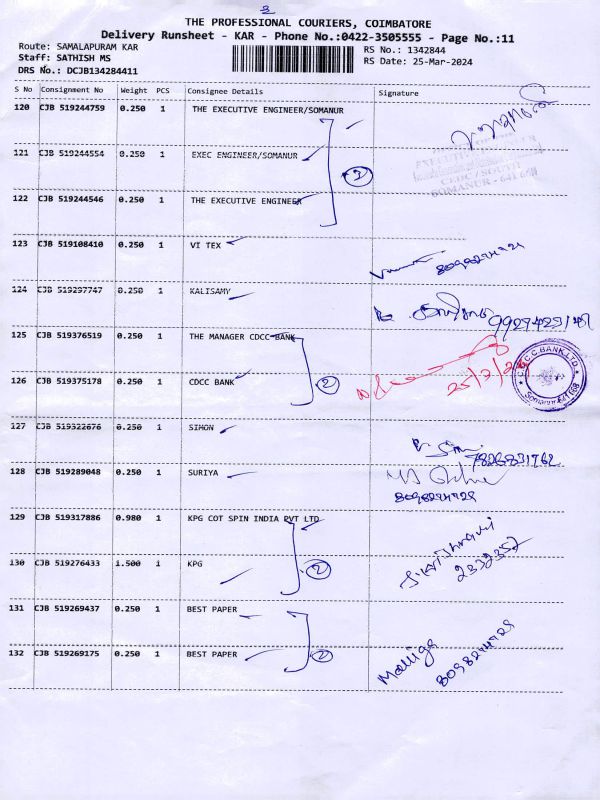 THE PROFESSIONAL COURIERS, COIMBATORE
Delivery Runsheet - KAR - Phone No.:0422-3505555 - Page No.:11
Route: SAMALAPURAM KAR
RS No.: 1342844
Staff: SATHISH MS
RS Date: 25-Mar-2024
DRS No.: DCJB134284411
S No Consignment No Weight PCS Consignee Details Signature
120 CJB 519244759 0.250 1 THE EXECUTIVE ENGINEER/SOMANUR
121 CJB 519244554 0.250 1 EXEC ENGINEER/SOMANUR
3
122 CJB 519244546 0.250 1 THE EXECUTIVE ENGINEER
123 CJB 519108410 0.250 1 VI TEX
124 CJB 519297747 0.250 1 KALISAMY
125 CJB 519376519 0.250 1 THE MANAGER CDCC BANK
25/3/24
126 CJB 519375178 0.250 1 CDCC BANK
2
127 CJB 519322676 0.250 1 SIMON
128 CJB 519289048 0.250 1 SURIYA
8098274928
129 CJB 519317886 0.980 1 KPG COT SPIN INDIA PVT LTD
130 CJB 519276433 1.500 1 KPG
2
2332357
131 CJB 519269437 0.250 1 BEST PAPER
132 CJB 519269175 0.250 1 BEST PAPER
2
Malliga
8098274928